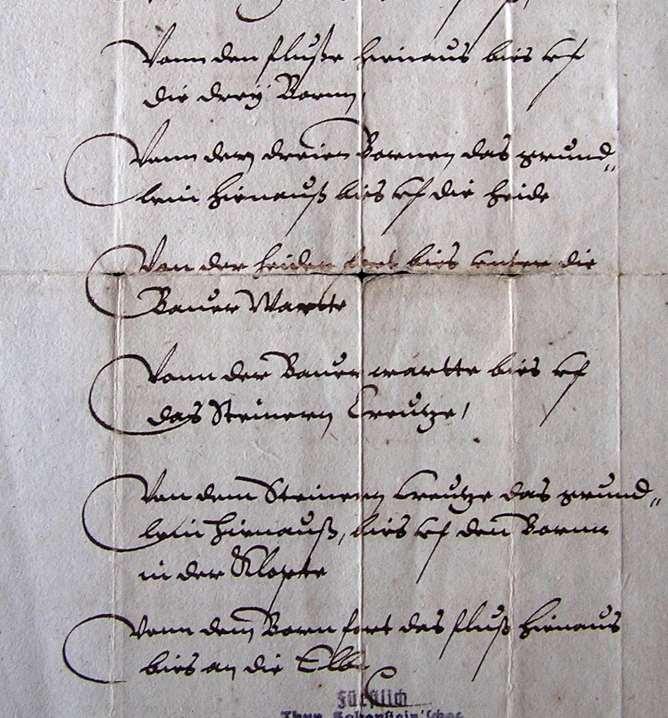 Vonn den fluße hienaus bies vf
die drey Bornn,
Vonn dern dreien Bornen das grund„
lein hienauß bies vf die heide
Von der heiden fort bies vnter die
Bauer Wartte
Vonn der Bauer wartte bies vf
das Steinern Creutze,
Von dem Steinern Creutze das grund„
lein hienauß, bies vf den Bornn
in der
Vonn dem Born fort das fluß hienaus
bies an die Elbe
Fürstlich
Thurn